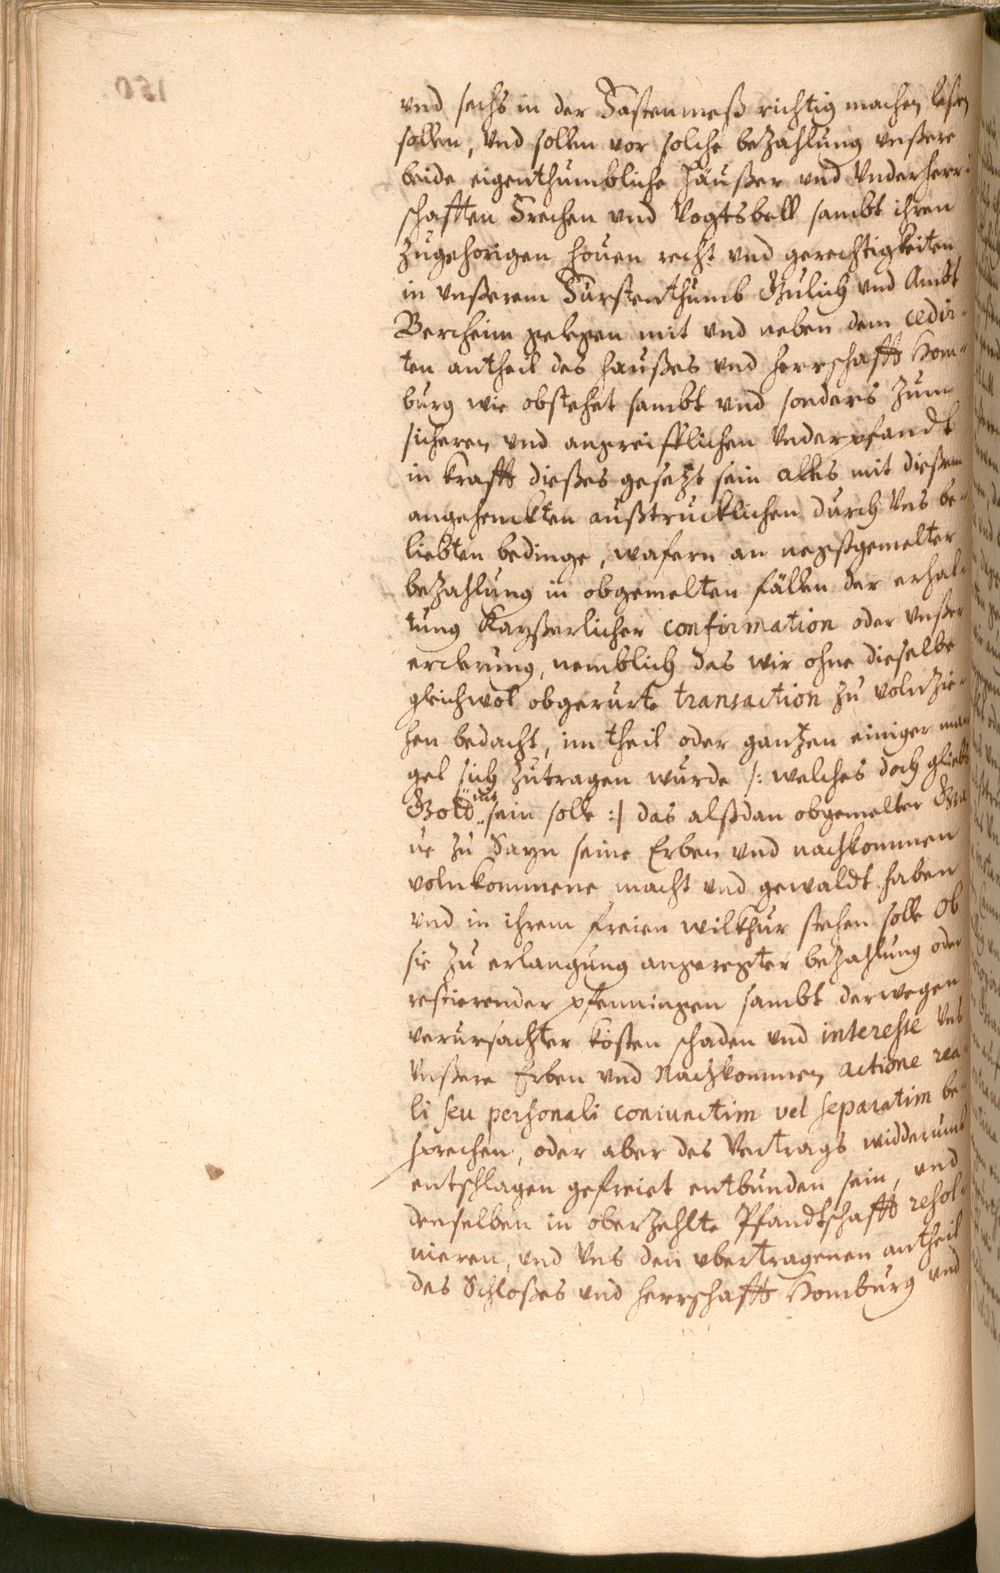 vnd sechs in der Fastenmeß richtig machen laßen
sollen, vnd sollen vor solche bezahlung vnßere
beide eigenthumbliche häußer vnd Vnderherr-
schafften Frechen vnd Vogtsbell sambt ihren
zugehorigen houen recht vnd gerechtigkeiten
in vnßerem Furstenthumb Gulich vnd Ambt
Bercheim gelegen mit vnd neben dem cedir-
ten antheil des haußes vnd herrschafft Hom-
burg wie obstehet sambt vnd sonders zum
sicheren vnd angreifflichen Vnderpfandt
in krafft dießes gesetzt sein alles mit dießem
angehenckten außtrucklichen durch Vns be-
liebten bedinge, wafern an negstgemelter
bezahlung in obgemelten fällen der erhal-
tung Kayßerlicher confirmation oder vnßer
erclerung, nemblich das wir ohne dieselbe
gleichwol obgerurte transaction zu volnzie-
hen bedacht, im theil oder gantzen einiger man
gel sich zutragen wurde /: welches doch gliebts
Gott nit sein solle :/ das alßdan obgemelter Gra
ue zu Sayn seine Erben vnd nachkommen
volnkommene macht vnd gewaldt haben
vnd in ihrem freien wilkhur stehen solle ob
sie zu erlangung angeregter bezahlung oder
restierender pfenningen sambt derwegen
verursachter kosten schaden vnd interesse Vns
Vnßere Erben vnd Nachkommen actione rea-
li seu personali coniunctim vel separatim be-
sprechen, oder aber des Vertrags widderumb
entschlagen gefreiet entbunden sein, vnd
denselben in oberzehlte Pfandtschafft resol-
uieren, vnd Vns den vbertragenen antheil
des Schloßes vnd herrschafft Homburg vnd